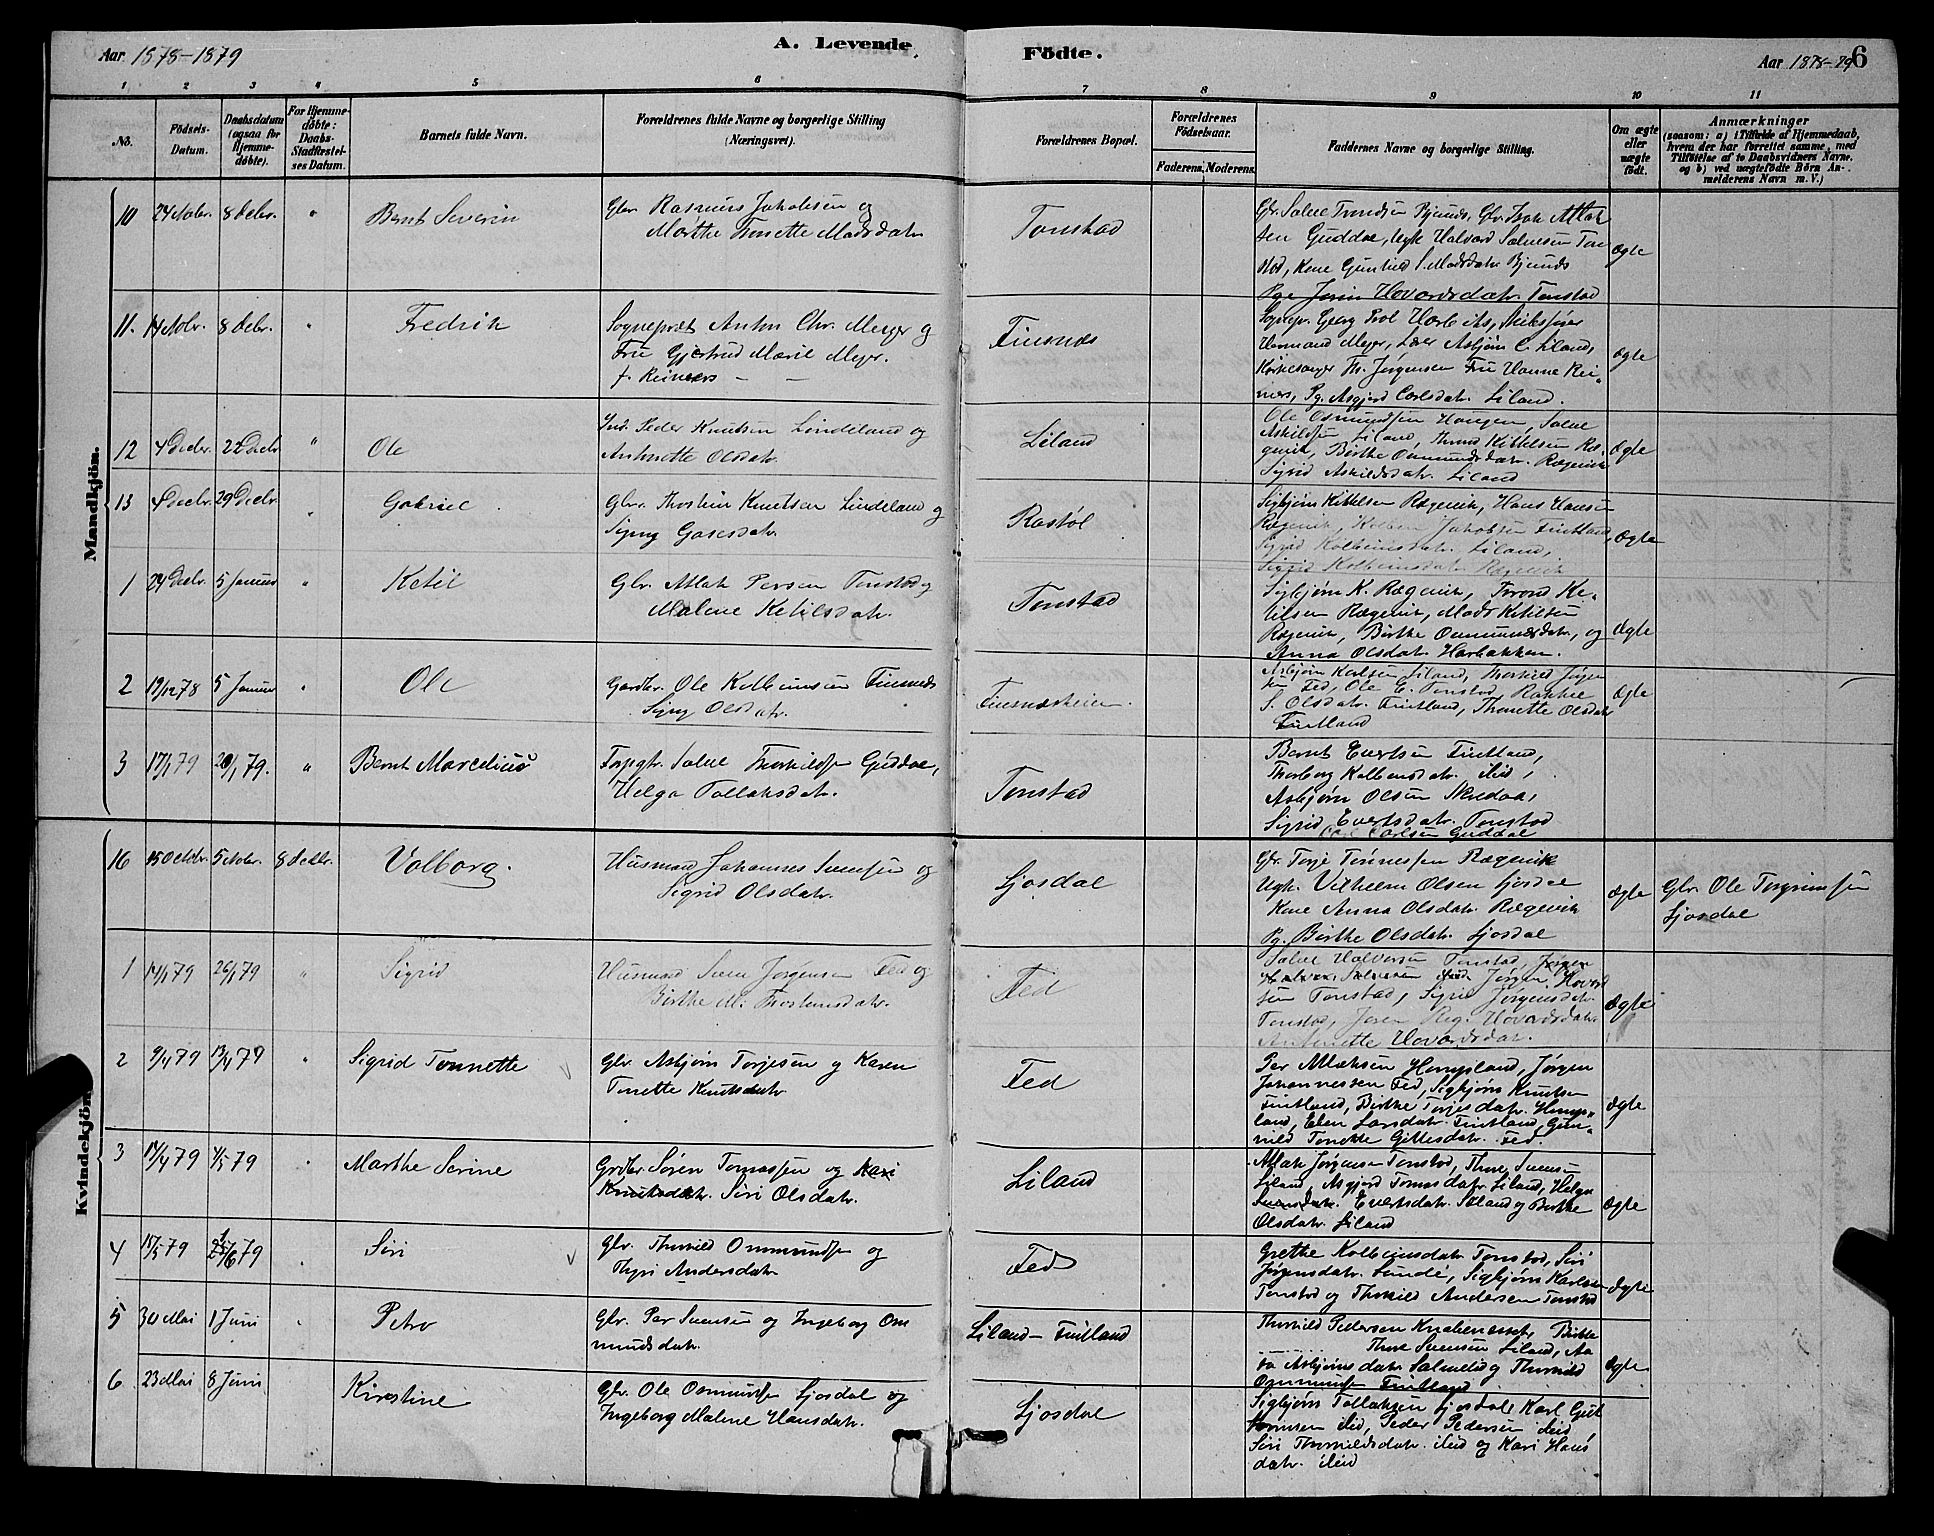 Aar 1878-1879
A. Levende
Födte.
Aar 1878-79
6
1 2 3 4 5 6 7 8 9 10 11
No.
Födsels-
Datum.
Daabsdatum
(ogsaa for
Hjemme-
döbte).
For Hjemme-
döbte:
Daabs-
Stadfæstel-
ses Datum.
Barnets fulde Navn.
Forældrenes fulde Navne og borgerlige Stilling
(Næringsvei).
Forældrenes Bopæl.
Forældrenes
Födselsaar.
Faderens. Moderens.
Faddernes Navne og borgerlige Stilling.
Om ægte
eller
uægte
födt.
Anmærkninger
(saasom: a) i Tilfælde af Hjemmedaab,
hvem der har forrettet samme, med
Tilföielse af to Daabsvidners Navne,
og b) ved uægtefödte Börn An-
melderens Navn m. V.)
Mandkjön.
10 24 Nobr. 8 Debr. " Bernt Severin
Gbr. Rasmus Jakobsen og
Marthe Tonette Madsdatr.
Tonstad
Gbr. Salve Trondsen Bjunds, Gbr. Isak Atlak
sen Guddal, Ugk Halvard Salvesen Ton
stad, Kone Gunhild S. Madsdatr Bjunds
Pge Joren Hovardsdatr. Tonstad
ægte
11. 14 Nobr. 8 Debr. " Fredrik
Sognepræt Anton Chr. Meyer og
Fru Gjertrud Marie Meyer.
f. Reiners - -
Finsnes
Hermand Meyer, Lærer Asbjørn C. Liland,
Kirkesanger Th. Jørgensen Fru Hanne Rei-
ners, Pg. Asgjerd Carlsdatr. Liland.
ægte
12 4 Decbr. 22 Decbr " Ole
Inds. Peder Knutsen Lindeland og
Antonette Olsdatr.
Liland
Ole Osmundsen Haugen, Salve
Askildsen Liland, Thrond Kittelsen Ræ-
gevik, Birthe Ommundsdatr. Rægevik
Sigrid Askildsdatr. Liland
ægte
13 4 Decbr. 29 Decbr. " Gabriel.
Gbr. Thostein Knutsen Lindeland og
Signy Gasesdatr.
Rostøl
Sigbjørn Kittelsen Rægevik, Hans Hansen
Rægevik, Kolben Jakobsen Fintland,
Sigrid Kolbeinsdatr. Liland,
Sigrid Kolbeinsdatr. Rægevik
ægte
1 24 Decbr. 5 Januar " Ketil
Gbr. Atlak Persen Tonstad og
Malene Ketilsdatr.
Tonstad
Sigbjørn K. Rægevik, Trond Ke-
tilsen Rægevik, Mads Ketilsen
Rægevik, Birthe Ommundsdatr, og
Anna Olsdatr. Harbakken.
ægte
2 19/12 78 5 Januar " Ole
Gardbr. Ole Kolbeinsen Finsnes
Signy Olsdatr.
Finsnesheien.
Asbjørn Karlsen Liland, Thorkild Jørgen
sen Fed, Ole E. Tonstad, Rakkel
S. Olsdatr. Fintland, Thonette Olsdatr
Fintland
ægte
3 17/1 79 20/1 79. " Bernt Marcelius
Forpgtr. Salve Thorkildsen Guddal,
Helga Tollaksdatr.
Tonstad
Bernt Evertsen Fintland,
Thorborg Kolbensdatr. ibid,
Asbjørn Olsen Skredaa,
Sigrid Evertsdatr. Tonstad
Carlsen Guddal
Kvindekjön.
16 15 Octobr. 5 Nobr. 8 Decbr. Valborg.
Husmand Johannes Svensen og
Sigrid Olsdatr.
Ljosdal
Gbr. Terje Tønnessen Rægevik
Ugk. Vilhelm Olsen Ljosdal
Kone Anna Olsdatr. Rægevik
Pg. Birthe Olsdatr. Ljosdal
ægte
Gbr. Ole Torgrimsen
Ljosdal
1 14/1 79 26/1 79 " Sigrid
Husmand Sven Jørgensen Fed og
Birthe M. Thosteinsdatr.
Fed
Salve Halvorsen Tonstad, Jørgen
Halvor Salvesen ibid. Jørgen Hovard
sen Tonstad, Sigrid Jørgensdatr.
Tonstad, Joren Reg. Hovardsdatr.
Antonette Hovardsdatr.
ægte
2 9/4 79 13/4 79 " Sigrid Tonnette
Gbr. Asbjørn Torjesen og Karen
Tonette Knutsdatr
Fed
Per Atlaksen Hompland, Jørgen
Johannessen Fed, Sigbjørn Knutsen
Fintland, Birthe Torjesdatr. Homp-
land, Elen Larsdatr. Fintland, Gun-
nild Tonette Gittesdatr. Fed.
ægte
3 17/4 79 4/5 79 " Marthe Serine
Grdbr Søren Tomassen og Kari
Knutsdatr. Siri Olsdatr.
Liland
Atlak Jørgensen Tonstad, Thore Svensen
Liland, Asgjerd Tomasdatr. Liland, Helga
Svensdatr. Evertsdatr. Øland og Birthe
Olsdatr. Liland
ægte
4 15/5 79 /6 79 Siri
Gbr. Thorkild Ommundsen og
Thyri Andersdatr
Fed
Grethe Kolbeinsdatr Tonstad, Siri
Jørgensdatr. Lunde, Sigbjørn Karlsen
Tonstad og Thorkild Andersen Tonstad
ægte
5 30 Mai 1 Juni " Petra
Gbr. Per Svensen og Ingeborg Om
mundsdatr.
Liland - Fintland
Thorkild Pedersen Knabenessets Birthe
Thore Svensen Liland, Aa
sa Asbjørns datr Salmelid og Thorkild
Ommundsen Fintland
ægte
6 23 Mai 8 Juni Kirstine
Gbr. Ole Osmundsen Ljosdal og
Ingeborg Malene Hansdatr.
Ljosdal
Sigbjørn Tollaksen Ljosdal, Karl Gut
tormsen ibid, Peder Pedersen ibid
Siri Thorkildsdatr. ibid og Kari Hans
datr. ibid